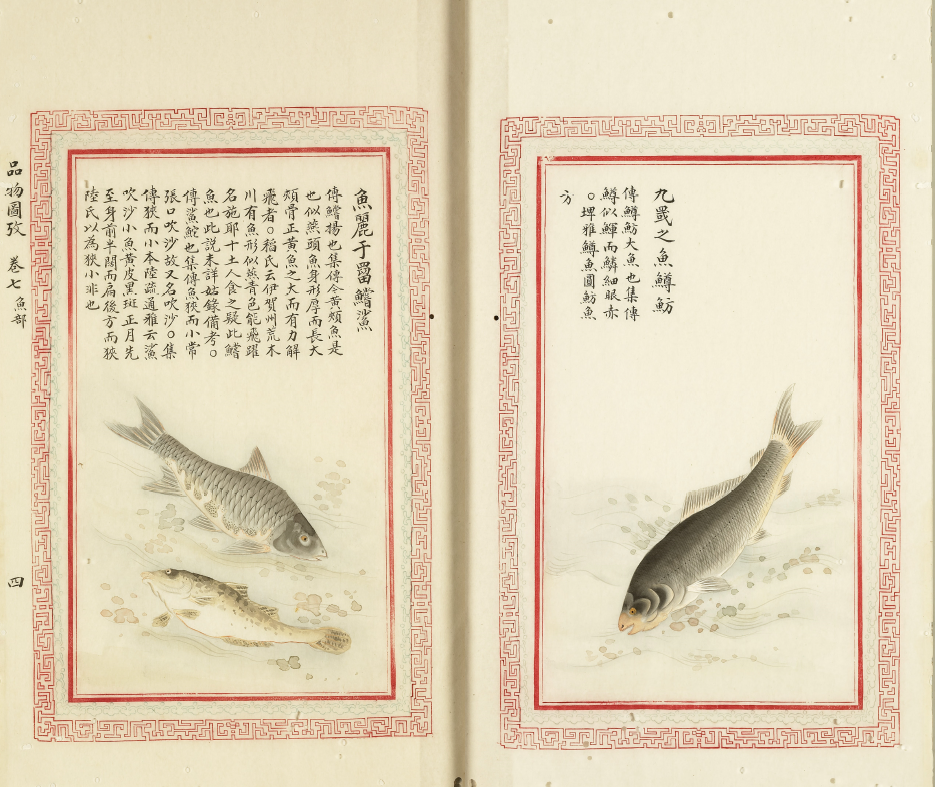 九罭之魚鱒魴
傳鱒魴大魚也集傳
鱒似鯶而鱗細眼赤
○埤雅鱒魚圓魴魚
方
魚麗于罶鱨鯊
傳鱨揚也集傳今黃頰魚是
也似燕頭魚身形厚而長大
頰骨正黃魚之大而有力解
飛者○稻氏云伊賀州荒木
川有魚形似燕青色能飛躍
名施耶十土人食之疑此鱨
魚也此説未詳姑錄備考○
傳鯊鮀也集傳魚狹而小常
張口吹沙故又名吹沙○集
傳狹而小本陸疏通雅云鯊
吹沙小魚黃皮黑斑正月先
至身前半闊而扁後方而狹
陸氏以為狹小非也
品物圖攷 卷七 魚部 四